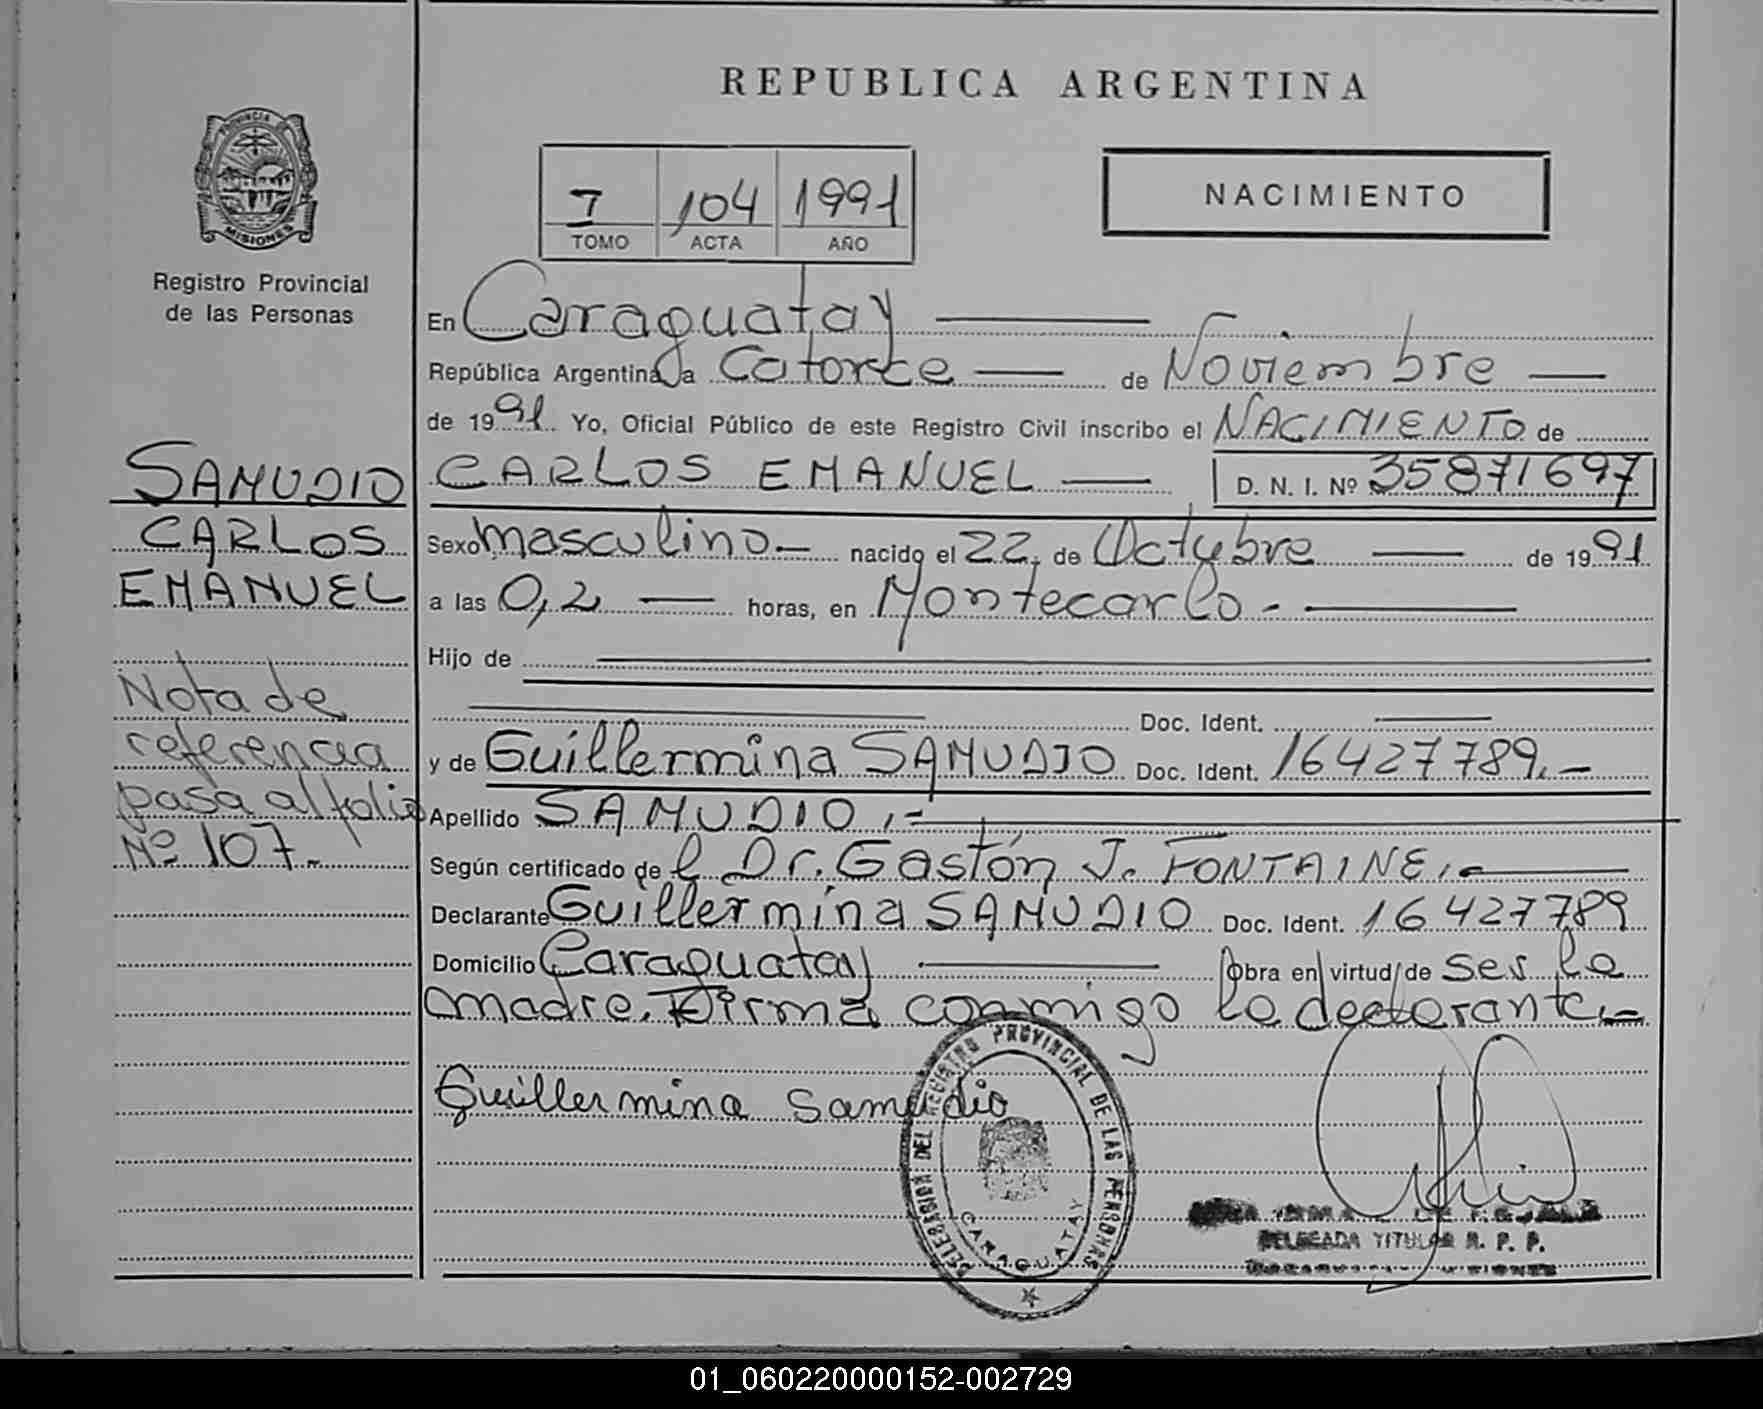 REPUBLICA ARGENTINA
PROVINCIA DE
MISIONES
Registro Provincial
de las Personas
I 104 1991
TOMO ACTA AÑO
NACIMIENTO
En Caraguatay
República Argentina, a Catorce de Noviembre
de 1991. Yo, Oficial Público de este Registro Civil inscribo el NACIMIENTO de
CARLOS EMANUEL D. N. I. Nº 35871697
Sexo masculino nacido el 22, de Octubre de 1991
a las 0,2 horas, en Montecarlo.-
Hijo de
Doc. Ident.
y de Guillermina SAMUDIO Doc. Ident. 16427789.-
Apellido SAMUDIO,-
Según certificado de l Dr. Gastón J. FONTAINE,-
Declarante Guillermina SAMUDIO Doc. Ident. 16427789
Domicilio Caraguatay Obra en virtud de ser la
madre. Firma conmigo la declarante.-
Guillermina Samudio
SAMUDIO
CARLOS
EMANUEL
Nota de
referencia
pasa al folio
Nº 107.
DELEGACION DEL REGISTRO PROVINCIAL DE LAS PERSONAS
CARAGUATAY
DELEGADA TITULAR R. P. P.
MISIONES
01_060220000152-002729